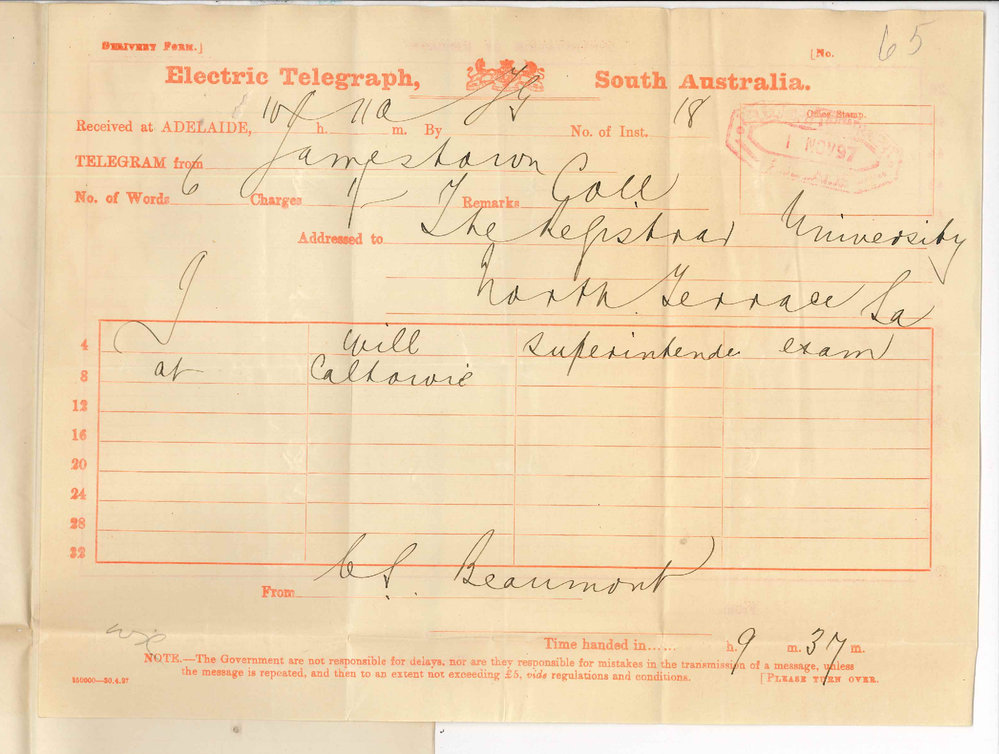 DELIVERY FORM.] [No. 65
Electric Telegraph, South Australia.
Office Stamp.
1 NOV 97
Received at ADELAIDE, 10 h. 11a m. By No. of Inst. 18
TELEGRAM from Jamestown
No. of Words 6 Charges 1/- Remarks Coll
Addressed to The Registrar University
North Terrace Sa
4 I will superintend exam
8 at Caltowie
12
16
20
24
28
32
From C S. Beaumont
Time handed in...... h. 9 m. 37 m.
NOTE.—The Government are not responsible for delays, nor are they responsible for mistakes in the transmission of a message, unless
the message is repeated, and then to an extent not exceeding £5, vide regulations and conditions. [PLEASE TURN OVER.
150000—30.4.97